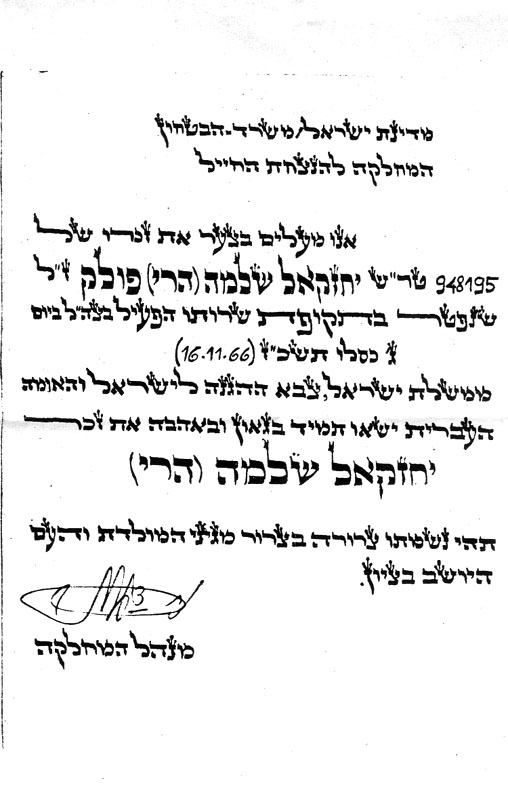 מדינת ישראל/משרד-הבטחון
המחלקה להנצחת החייל
אנו מעלים בצער את זכרו של
948195 טר"ש יחזקאל שלמה (הרי) פולק ז"ל
שנפטר בתקופת שרותו הפעיל בצה"ל ביום
ג' כסלו תשכ"ז (16.11.66)
ממשלת ישראל, צבא ההגנה לישראל והאומה
העברית ישאו תמיד בגאון ובאהבה את זכר
יחזקאל שלמה (הרי)
תהי נשמתו צרורה בצרור מגיני המולדת והעם
היושב בציון.
מנהל המחלקה